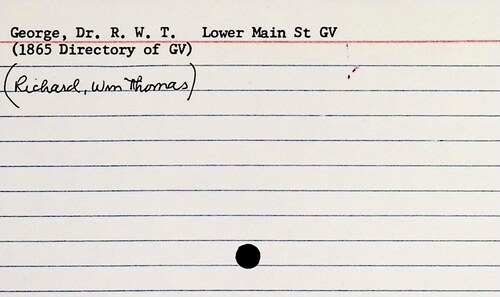 George, Dr. R. W. T. Lower Main St GV
(1865 Directory of GV)
(Richard, Wm Thomas)